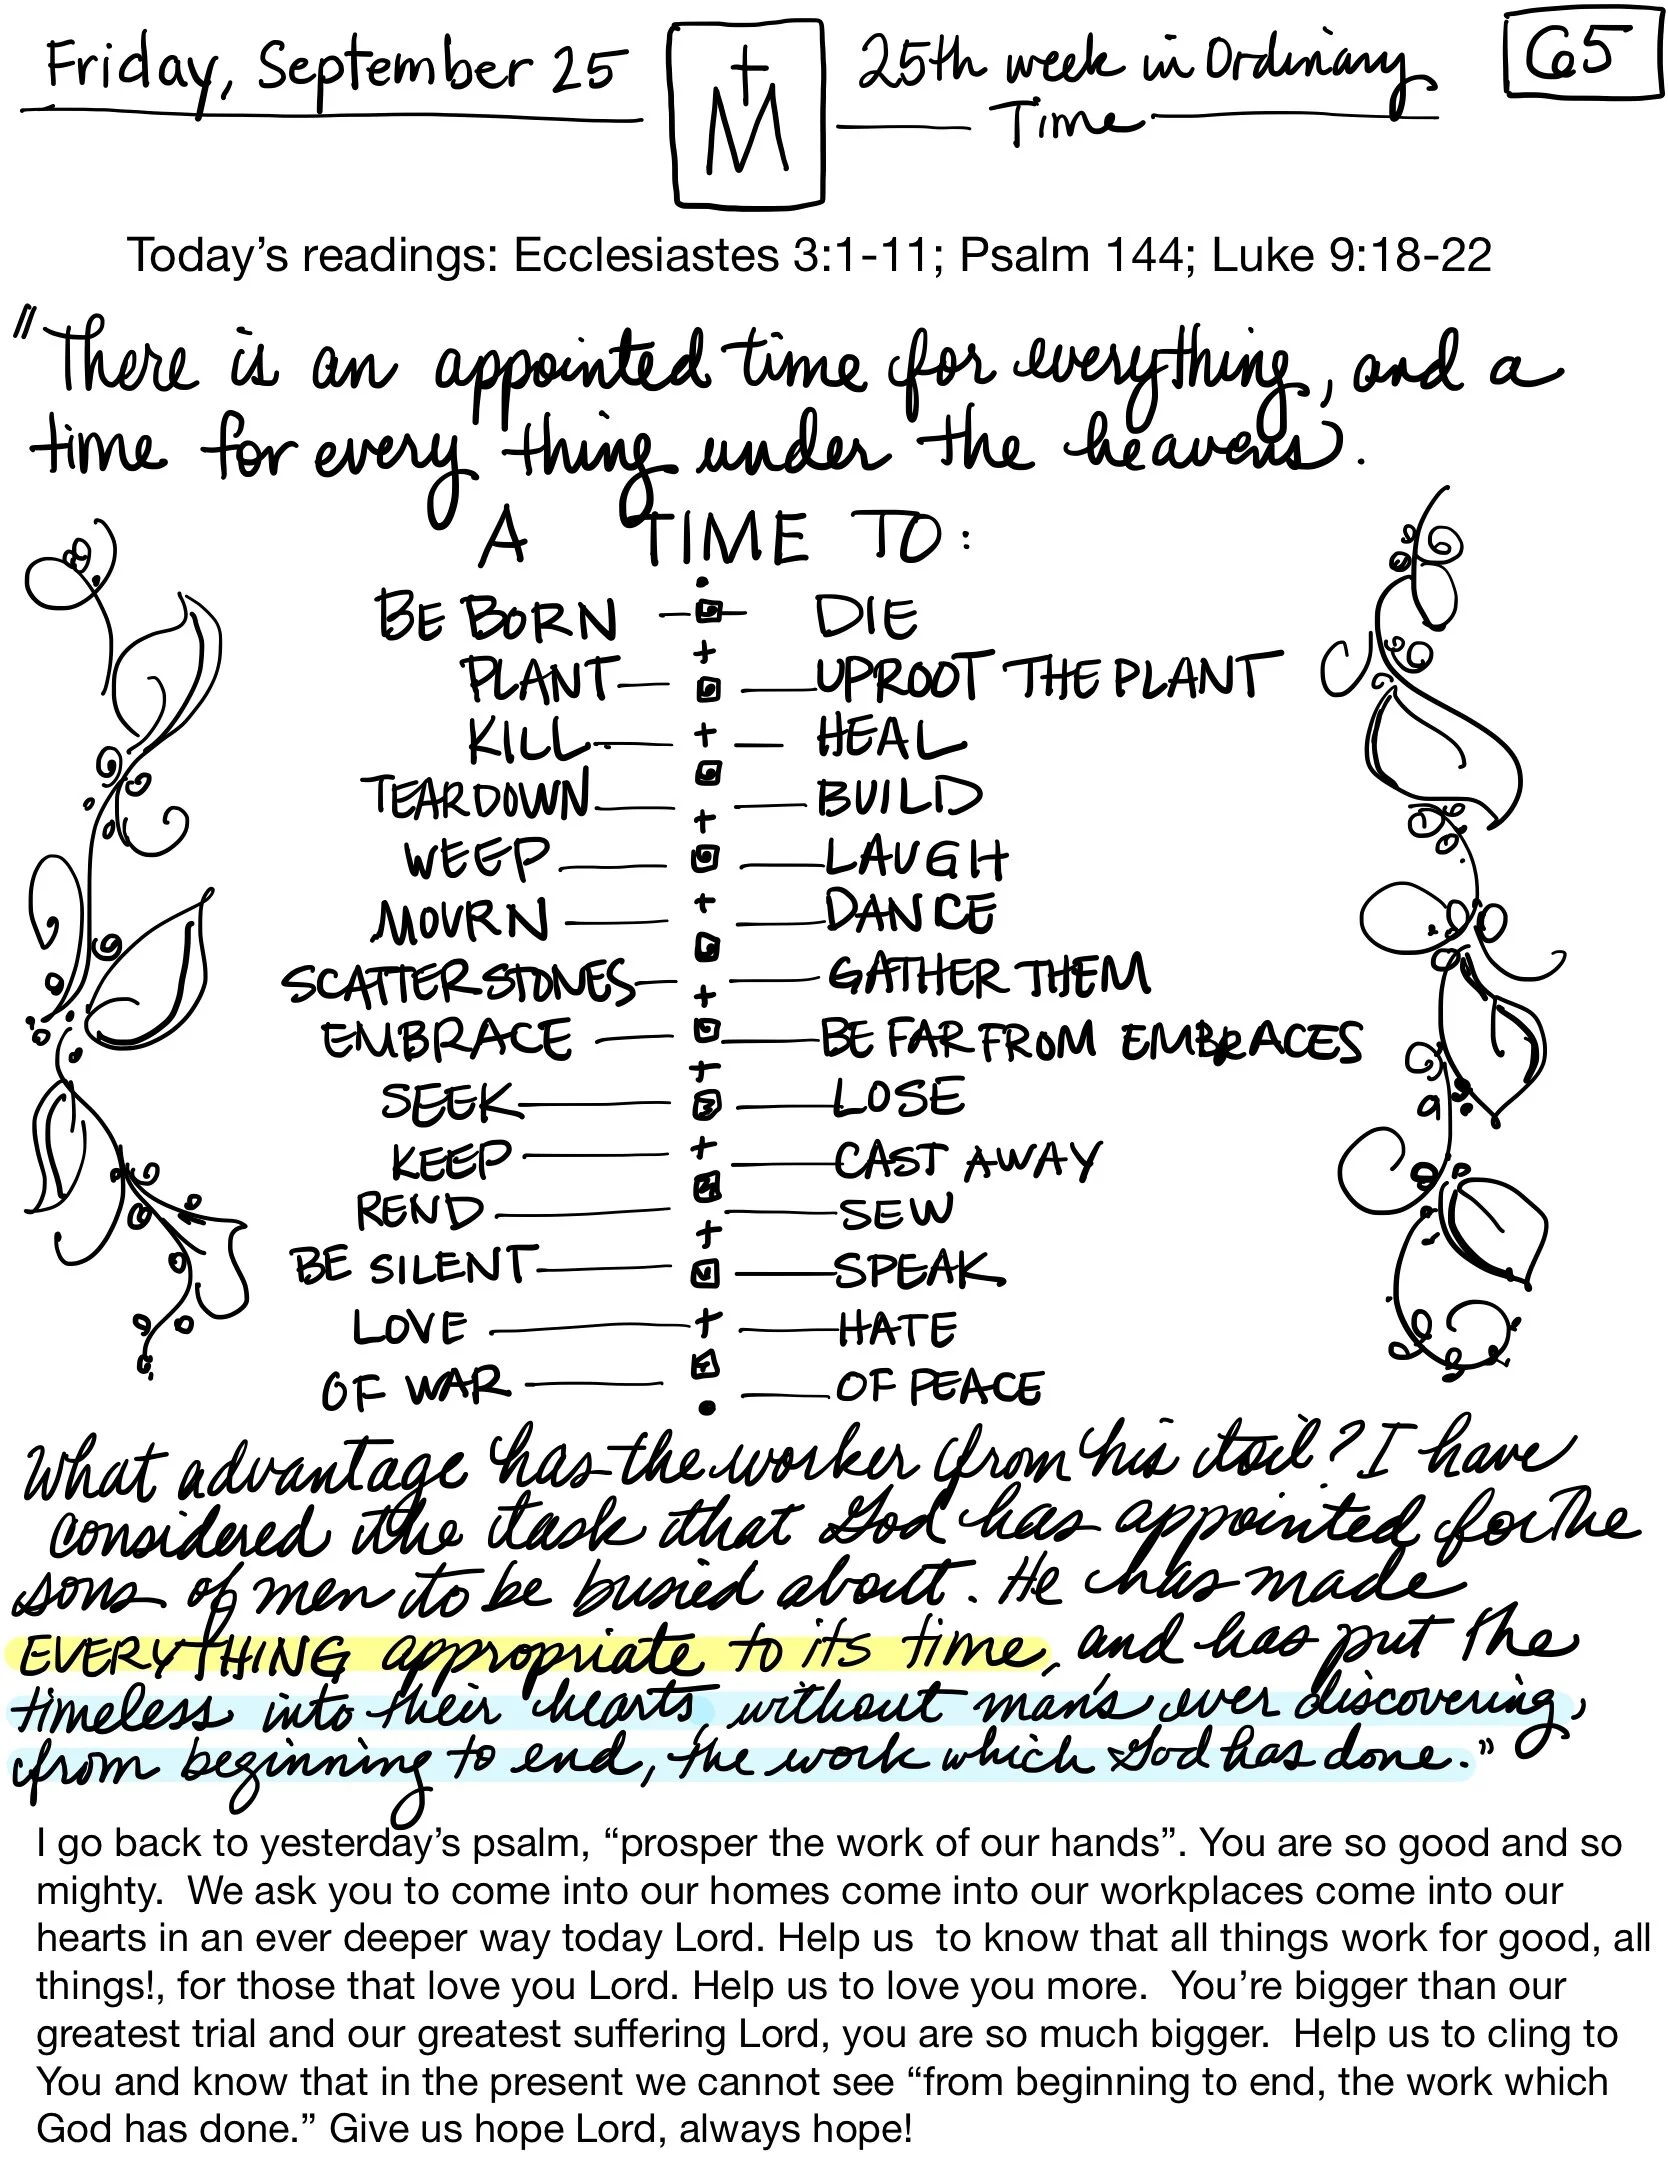 Friday, September 25
M
25th week in Ordinary
Time
65
Today’s readings: Ecclesiastes 3:1-11; Psalm 144; Luke 9:18-22
"There is an appointed time for everything, and a
time for every thing under the heavens.
A TIME TO:
BE BORN — DIE
PLANT — UPROOT THE PLANT
KILL — HEAL
TEAR DOWN — BUILD
WEEP — LAUGH
MOURN — DANCE
SCATTER STONES — GATHER THEM
EMBRACE — BE FAR FROM EMBRACES
SEEK — LOSE
KEEP — CAST AWAY
REND — SEW
BE SILENT — SPEAK
LOVE — HATE
OF WAR — OF PEACE
What advantage has the worker from his toil? I have
considered the task that God has appointed for the
sons of men to be busied about. He has made
EVERYTHING appropriate to its time, and has put the
timeless into their hearts, without man's ever discovering,
from beginning to end, the work which God has done."
I go back to yesterday’s psalm, “prosper the work of our hands”. You are so good and so
mighty.  We ask you to come into our homes come into our workplaces come into our
hearts in an ever deeper way today Lord. Help us  to know that all things work for good, all
things!, for those that love you Lord. Help us to love you more.  You’re bigger than our
greatest trial and our greatest suffering Lord, you are so much bigger.  Help us to cling to
You and know that in the present we cannot see “from beginning to end, the work which
God has done.” Give us hope Lord, always hope!